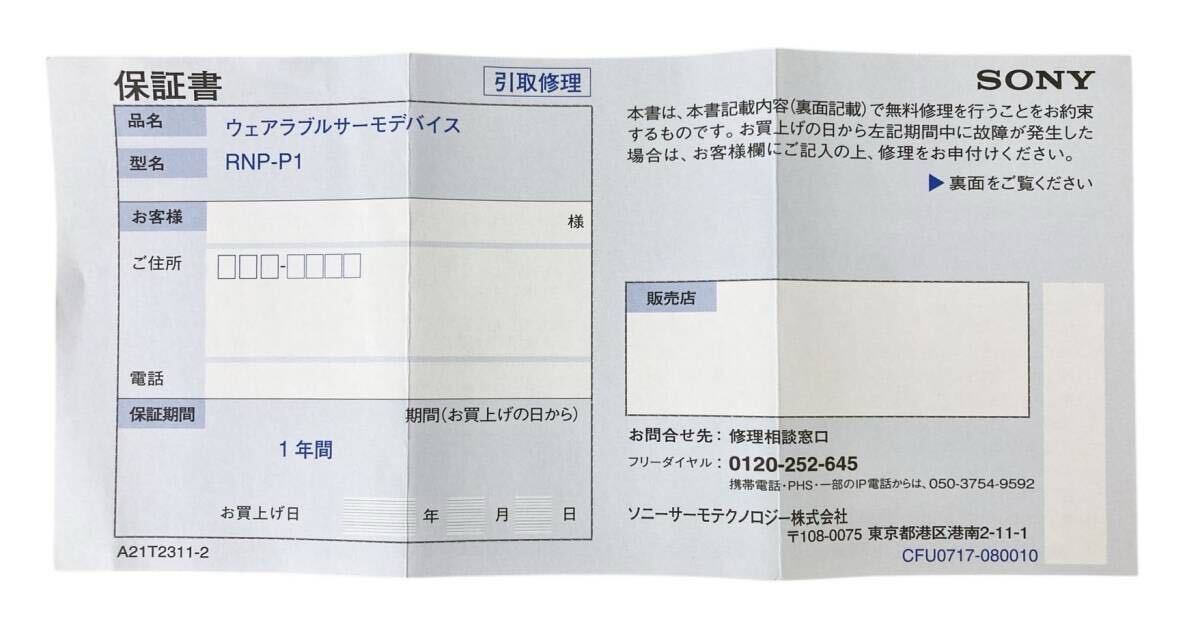 保証書
引取修理
品名 ウェアラブルサーモデバイス
型名 RNP-P1
お客様 様
ご住所 □□□-□□□□
電話
保証期間 期間(お買上げの日から)
1年間
お買上げ日 年 月 日
A21T2311-2
SONY
本書は、本書記載内容(裏面記載)で無料修理を行うことをお約束
するものです。お買上げの日から左記期間中に故障が発生した
場合は、お客様欄にご記入の上、修理をお申付けください。
▶裏面をご覧ください
販売店
お問合せ先：修理相談窓口
フリーダイヤル：0120-252-645
携帯電話・PHS・一部のIP電話からは、050-3754-9592
ソニーサーモテクノロジー株式会社
〒108-0075 東京都港区港南2-11-1
CFU0717-080010